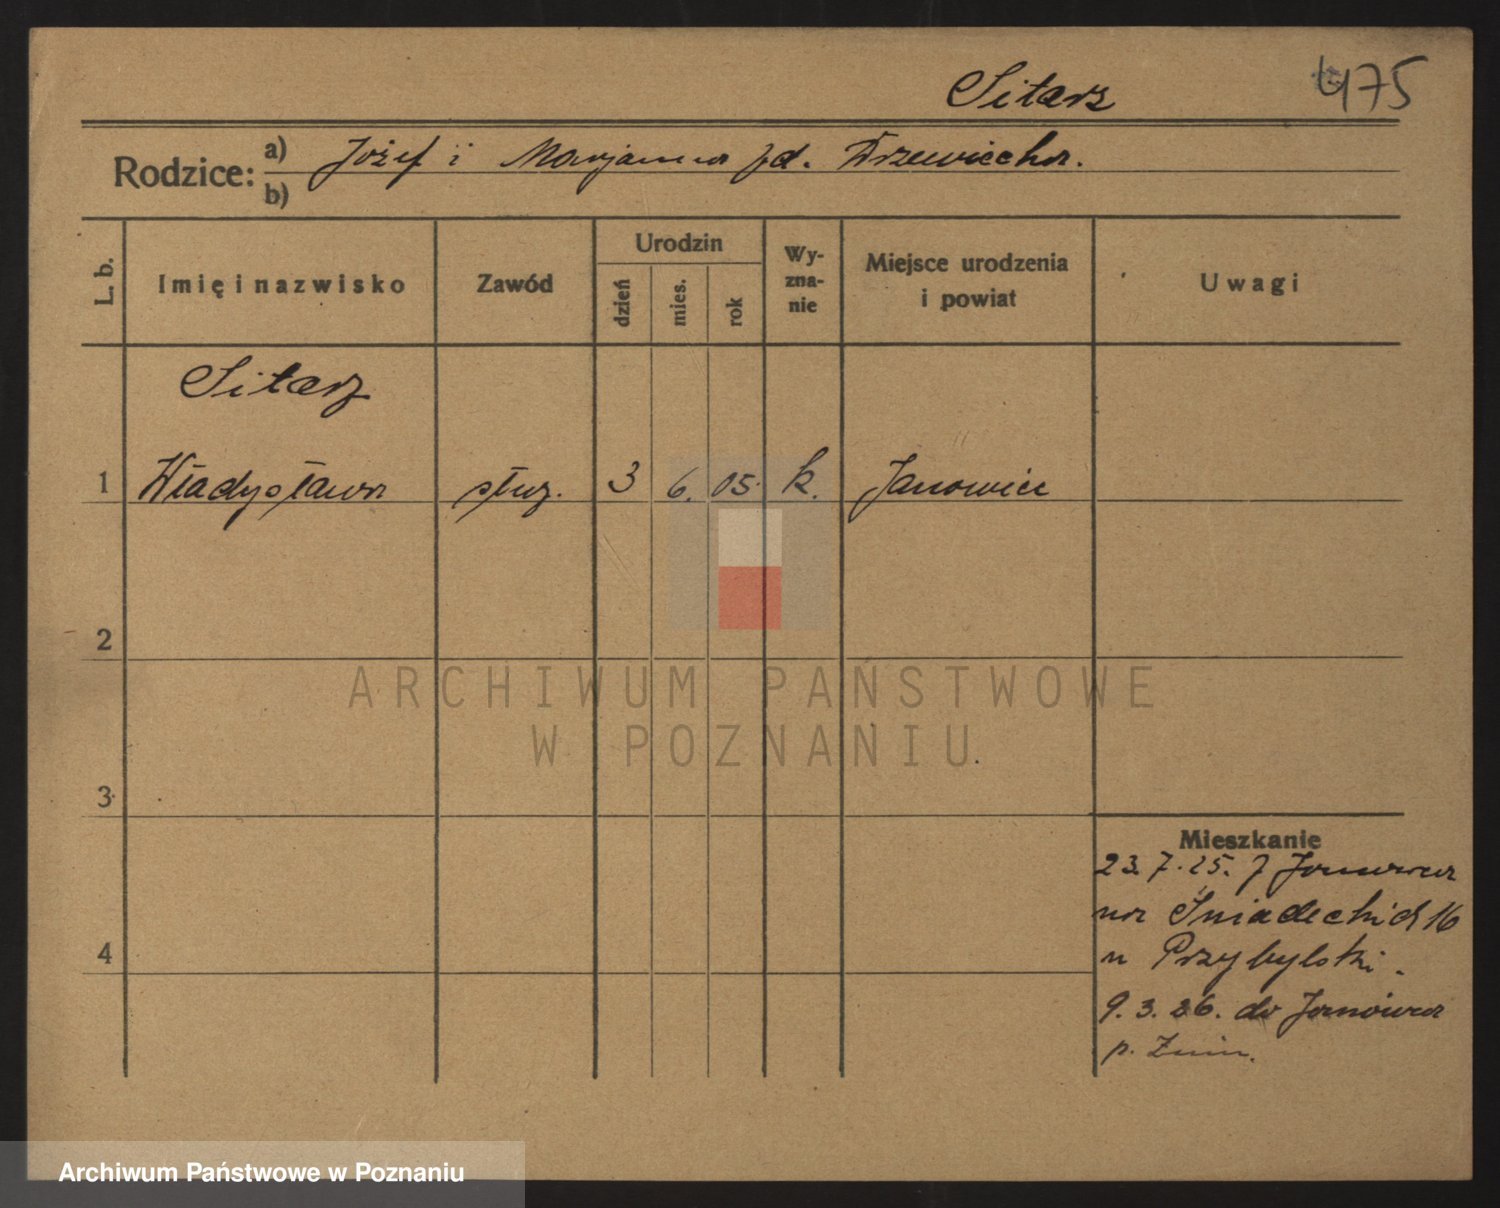 Sitarz 475
Rodzice: a) Józef i Marjanna zd. Drzewiecka.
b)
L. b. Imię i nazwisko Zawód Urodzin dzień mies. rok Wyznanie Miejsce urodzenia i powiat Uwagi
Sitarz
1 Władysława służ. 3 6. 05. k. Janowiec
2
ARCHIWUM PAŃSTWOWE
W POZNANIU
3
Mieszkanie
23. 7. 25. z Janowca
na Śniadeckich 16
u Przybylski.
4
9. 3. 26. do Janowca
p. Żnin.
Archiwum Państwowe w Poznaniu